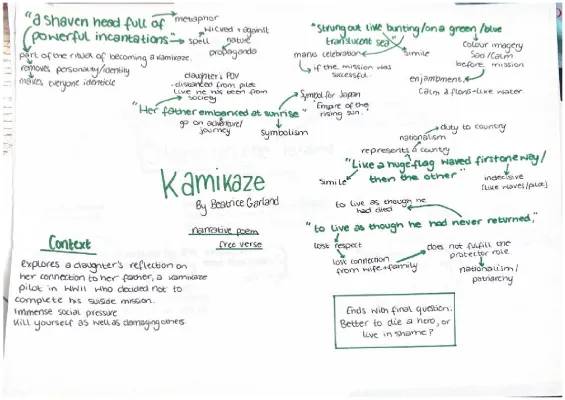 "a shaven head full of
powerful incantations"
metaphor
wicked + against
nature
spell
propaganda
part of the ritual of becoming a kamikaze
removes personality/identity
makes everyone identicle
daughter's POV
distanced from pilot
like he has been from
society
"Her father embarked at sunrise"
go on adventure/
journey
Symbolism
Symbol for Japan
'Empire of the
rising sun.'
"Strung out like bunting/on a green/blue
translucent sea"
marks celebration
if the mission was
successful
simile
Colour imagery
Sea/Calm
before mission
enjambment
Calm & flows like water
duty to country
nationalism
represents a country
"Like a huge flag waved first one way/
then the other"
simile
indecisive
(like waves/pilot)
to live as though he
had died
"to live as though he had never returned,"
lost respect
lost connection
from wife + family
does not fulfill the
protector role
nationalism/
patriarchy
Kamikaze
By Beatrice Garland
narrative poem
free verse
Context
Explores a daughter's reflection on
her connection to her father, a kamikaze
pilot in WWII who decided not to
complete his suicide mission.
Immense social pressure
Kill yourself as well as damaging others.
Ends with final question.
Better to die a hero, or
live in shame?